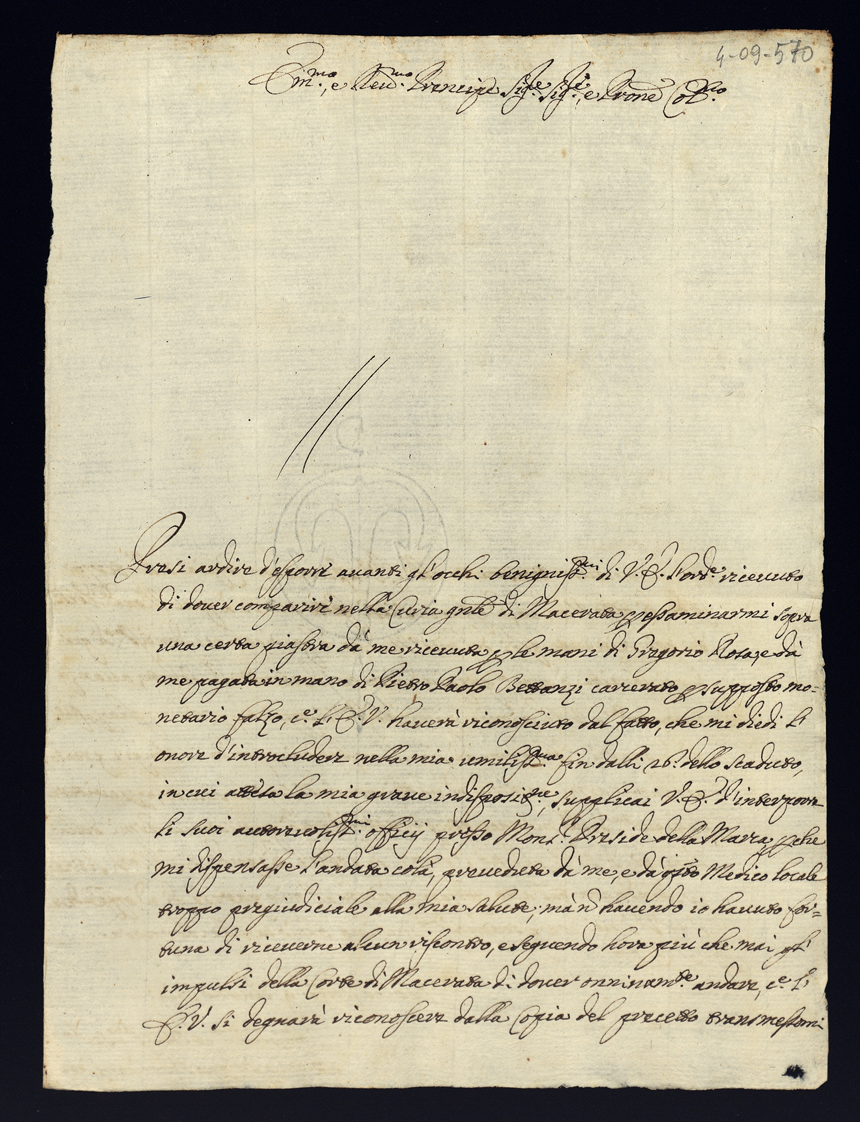 4-09-570
Em.mo, e Reu.mo Principe Sig.re Sig.re, e Prone Col.mo
Presi ardire d'esporre auanti gl'occhi benigniss.mi di V. E. l'ord.e riceuuto
di douer comparire nella Curia gnle di Macerata p essaminarmi sopra
una certa piastra dà me riceuuta p le mani di Gregorio Rosa, e dà
me pagata in mano di Pietro Paolo Bettanzi carcerato p supposto mo=
netario falzo, c.e l'E. V. hauerà riconosciuto dal fatto, che mi diedi l'
onore d'introcludere nella mia umiliss.ma fin dalli 26. dello scaduto,
in cui attesa la mia graue indisposiz.ne, supplicai V. E. d'interporre
li suoi autoreuoliss.mi officij presso Mons.r Preside della Marca, p che
mi dispensasse l'andata colà, preueduta dà me, e dà q.sto Medico locale
troppo pregiudiciale alla mia salute; mà ñ hauendo io hauuto for=
tuna di riceuerne alcun riscontro, e seguendo hora più che mai gl'
impulsi della Corte di Macerata di douer onninam.te andare, c.e l'
E. V. si degnarà riconoscere dalla Copia del precetto transmessomi